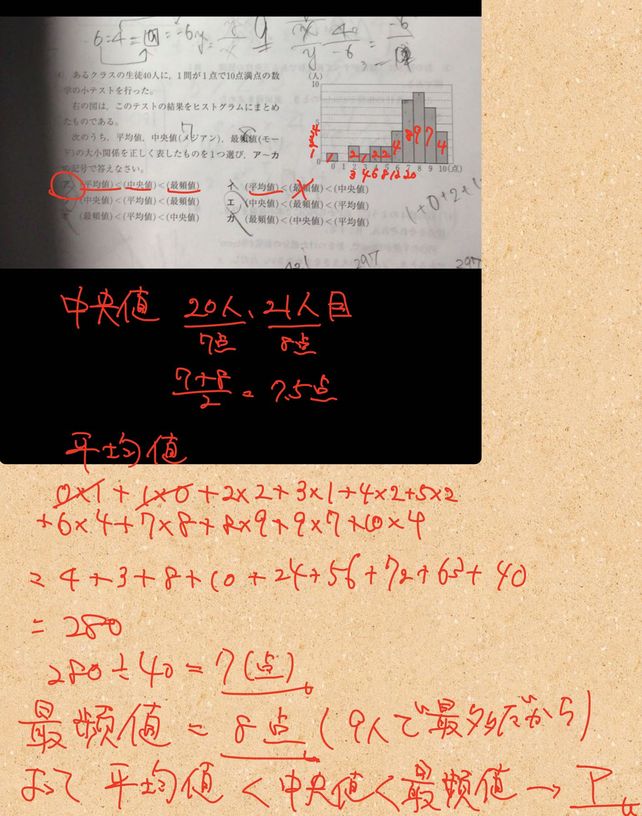 -6:4=
4. あるクラスの生徒40人に，1問が1点で10点満点の数
学の小テストを行った。
右の図は，このテストの結果をヒストグラムにまとめ
たものである。
次のうち，平均値，中央値(メジアン)，最頻値(モー
ド)の大小関係を正しく表したものを1つ選び，ア～カ
の記号で答えなさい。
ア (平均値)<(中央値)<(最頻値)
イ (平均値)<(最頻値)<(中央値)
(中央値)<(平均値)<(最頻値)
エ (中央値)<(最頻値)<(平均値)
オ (最頻値)<(平均値)<(中央値)
カ (最頻値)<(中央値)<(平均値)
(人)
10
5
0
0 1 2 3 4 5 6 7 8 9 10(点)
1 2 1 2 2 4 8 9 7 4
3 4 6 8 12 20
1+0+2+1
297
297
中央値 20人、21人目
7点 8点
7+8/2 = 7.5点
平均値
0×1+1×0+2×2+3×1+4×2+5×2
+6×4+7×8+8×9+9×7+10×4
=4+3+8+10+24+56+72+63+40
=280
280÷40=7(点)
最頻値=8点(9人で最多だから)
よって 平均値<中央値<最頻値→ア